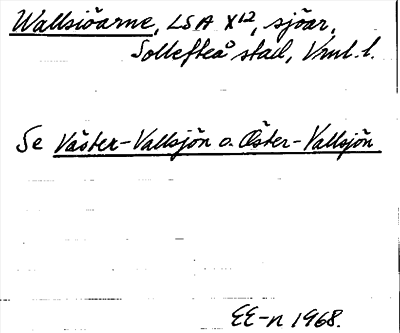 Wallsiöarne, LSA X12, sjöar,
Sollefteå stad, Vrnl. l.
Se Väster-Vallsjön o. Öster-Vallsjön
EE-n 1968.